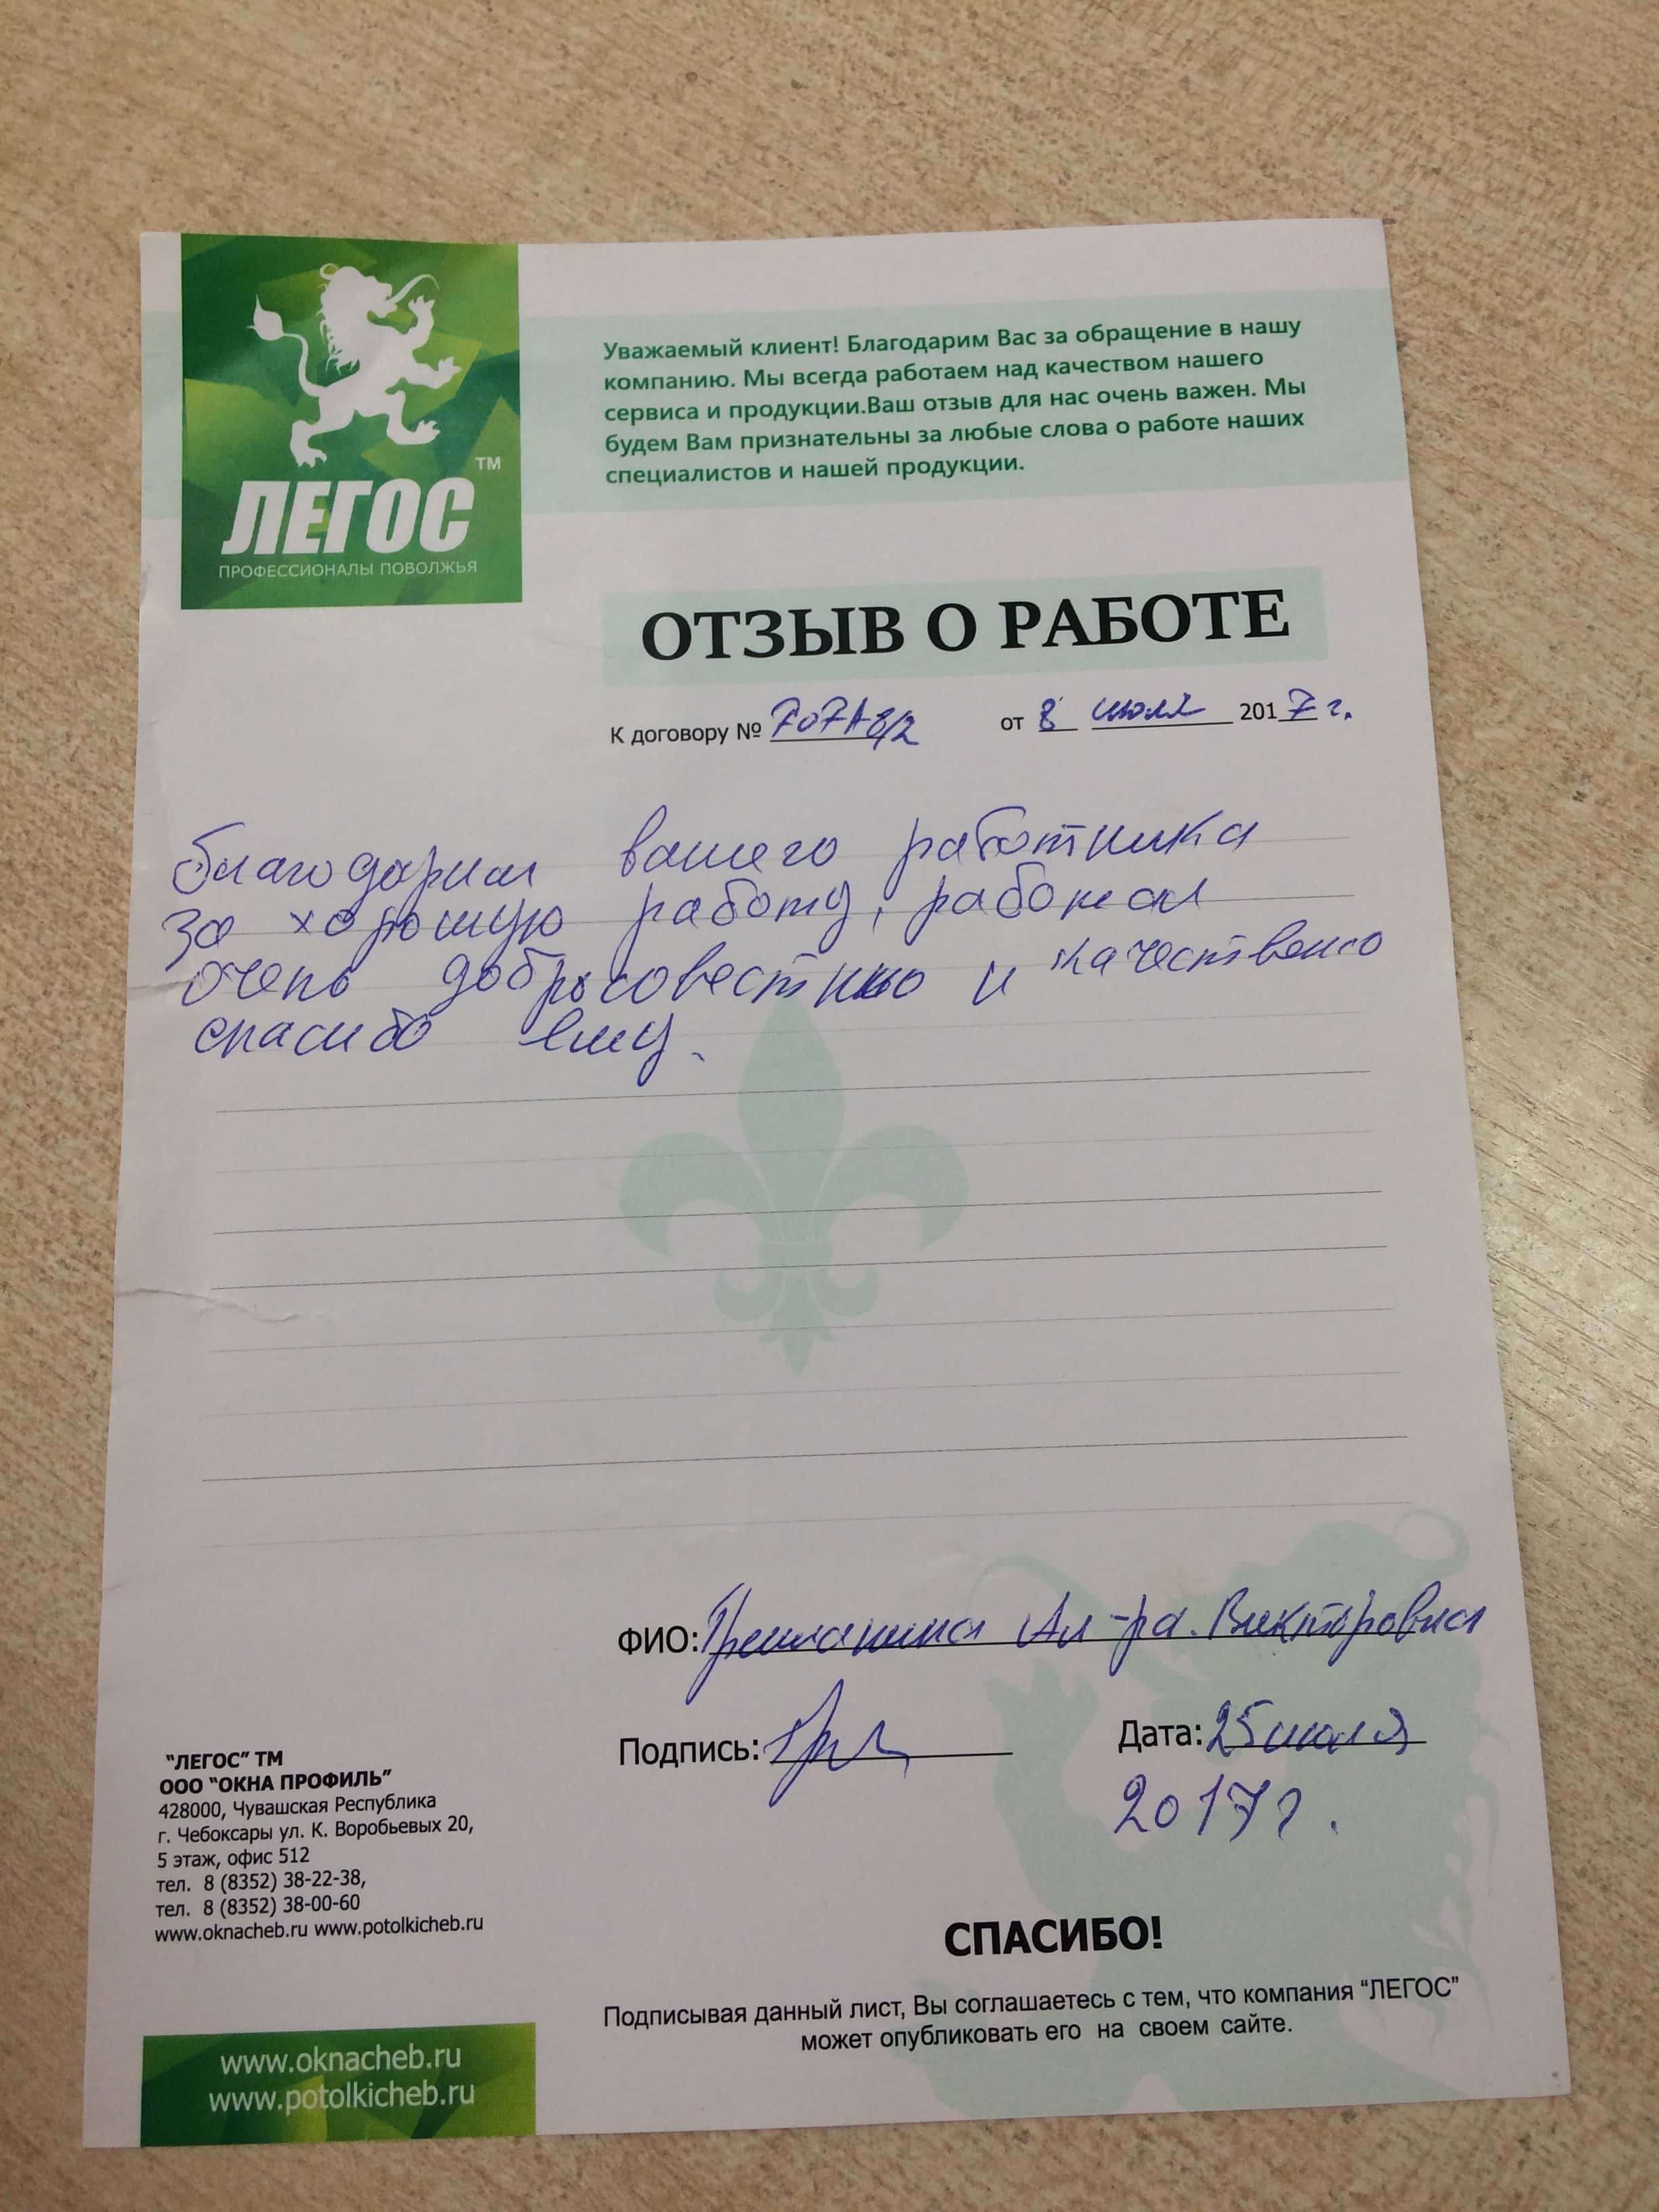 ТМ
ЛЕГОС
ПРОФЕССИОНАЛЫ ПОВОЛЖЬЯ
Уважаемый клиент! Благодарим Вас за обращение в нашу
компанию. Мы всегда работаем над качеством нашего
сервиса и продукции.Ваш отзыв для нас очень важен. Мы
будем Вам признательны за любые слова о работе наших
специалистов и нашей продукции.
ОТЗЫВ О РАБОТЕ
К договору № 707А8/2 от 8 июля 2017 г.
благодарим вашего работника
за хорошую работу, работал
очень добросовестно и качествено
спасибо ему.
ФИО: Ал-ра. Викторовна
Подпись: Дата: 25 июля
2017г.
"ЛЕГОС" ТМ
ООО "ОКНА ПРОФИЛЬ"
428000, Чувашская Республика
г. Чебоксары ул. К. Воробьевых 20,
5 этаж, офис 512
тел. 8 (8352) 38-22-38,
тел. 8 (8352) 38-00-60
www.oknacheb.ru www.potolkicheb.ru
СПАСИБО!
Подписывая данный лист, Вы соглашаетесь с тем, что компания "ЛЕГОС"
может опубликовать его на своем сайте.
www.oknacheb.ru
www.potolkicheb.ru